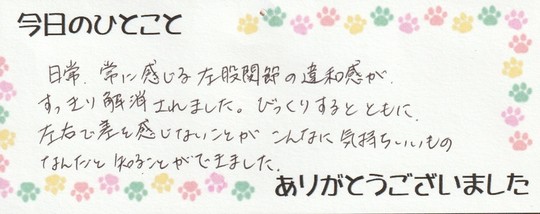 今日のひとこと
日常、常に感じる左股関節の違和感が、
すっきり解消されました。びっくりするとともに、
左右で差を感じないことがこんなに気持ちいいもの
なんだと知ることができました。
ありがとうございました